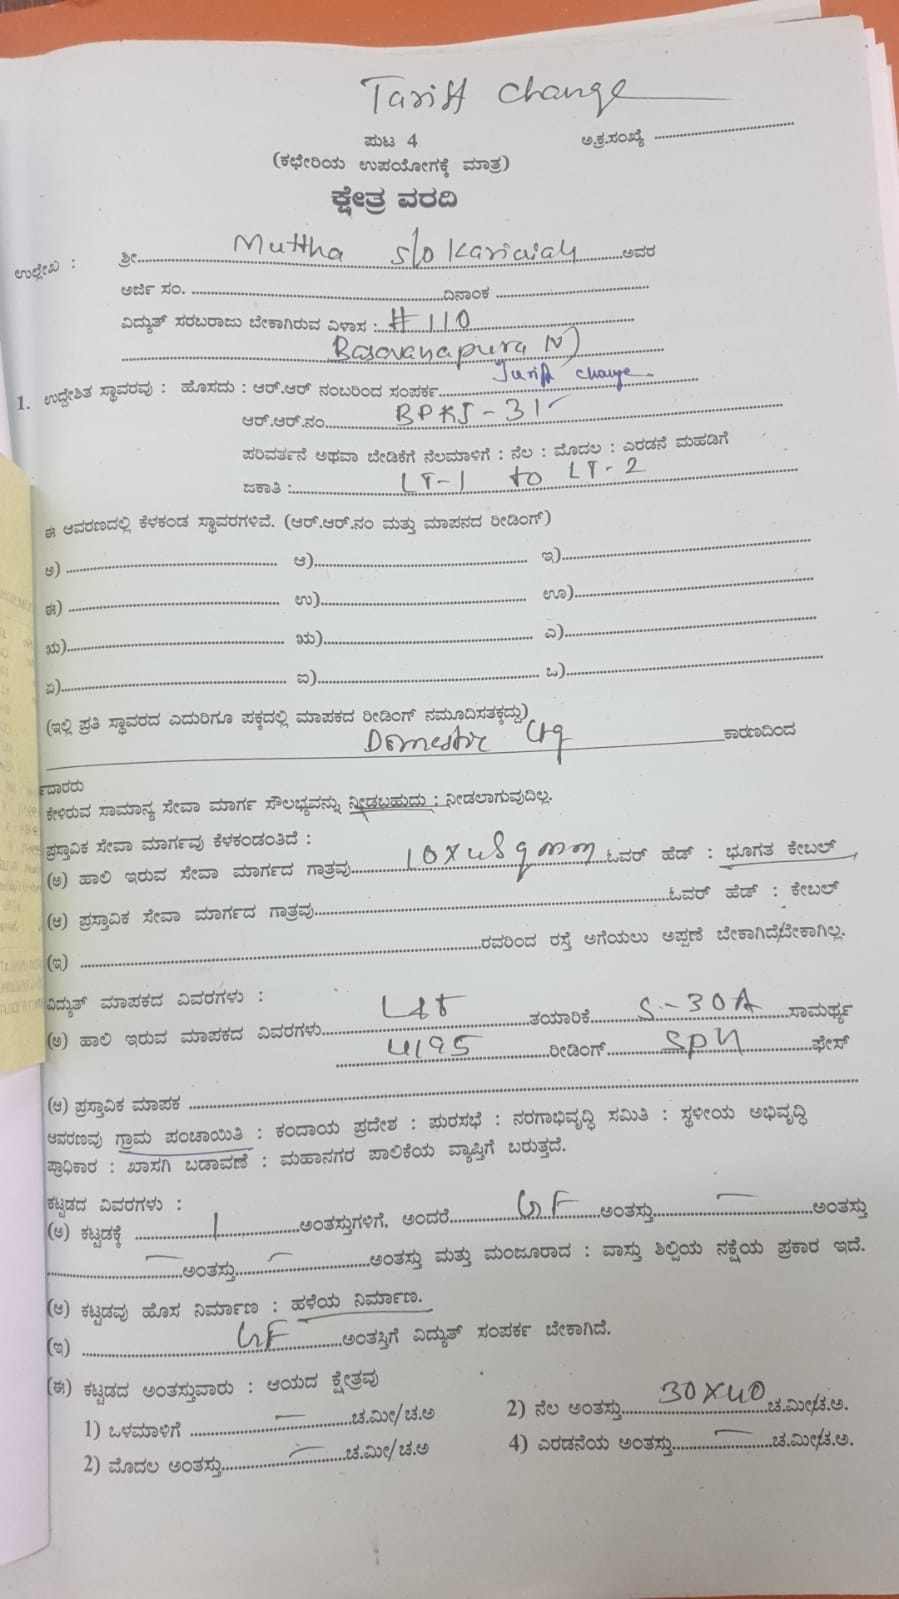 Tariff change
ಪುಟ 4
ಅ.ಕ್ರ.ಸಂಖ್ಯೆ ....................
(ಕಛೇರಿಯ ಉಪಯೋಗಕ್ಕೆ ಮಾತ್ರ)
ಕ್ಷೇತ್ರ ವರದಿ
ಉಲ್ಲೇಖ : ಶ್ರೀ.......Muttha s/o Kariaiah.......ಅವರ
ಅರ್ಜಿ ಸಂ. ....................ದಿನಾಂಕ ....................
ವಿದ್ಯುತ್ ಸರಬರಾಜು ಬೇಕಾಗಿರುವ ವಿಳಾಸ : #110
Basavanapura (V)
1. ಉದ್ದೇಶಿತ ಸ್ಥಾವರವು : ಹೊಸದು : ಆರ್.ಆರ್ ನಂಬರಿಂದ ಸಂಪರ್ಕ Tariff change
ಆರ್.ಆರ್.ನಂ. BPKJ-31
ಪರಿವರ್ತನೆ ಅಥವಾ ಬೇಡಿಕೆಗೆ ನೆಲಮಾಳಿಗೆ : ನೆಲ : ಮೊದಲ : ಎರಡನೆ ಮಹಡಿಗೆ
ಜಕಾತಿ : LT-1 to LT-2
ಈ ಆವರಣದಲ್ಲಿ ಕೆಳಕಂಡ ಸ್ಥಾವರಗಳಿವೆ. (ಆರ್.ಆರ್.ನಂ ಮತ್ತು ಮಾಪನದ ರೀಡಿಂಗ್)
ಅ) .................... ಆ).................... ಇ)....................
ಈ) .................... ಉ).................... ಊ)....................
ಋ).................... ಋ).................... ಎ)....................
ಏ).................... ಐ).................... ಒ)....................
(ಇಲ್ಲಿ ಪ್ರತಿ ಸ್ಥಾವರದ ಎದುರಿಗೂ ಪಕ್ಕದಲ್ಲಿ ಮಾಪಕದ ರೀಡಿಂಗ್ ನಮೂದಿಸತಕ್ಕದ್ದು)
Domestic Ltg ಕಾರಣದಿಂದ
ರ್ದಾರರು
ಕೇಳಿರುವ ಸಾಮಾನ್ಯ ಸೇವಾ ಮಾರ್ಗ ಸೌಲಭ್ಯವನ್ನು ನೀಡಬಹುದು : ನೀಡಲಾಗುವುದಿಲ್ಲ.
ಪ್ರಸ್ತಾವಿಕ ಸೇವಾ ಮಾರ್ಗವು ಕೆಳಕಂಡಂತಿದೆ :
(ಅ) ಹಾಲಿ ಇರುವ ಸೇವಾ ಮಾರ್ಗದ ಗಾತ್ರವು 10X4Sqmm ಓವರ್ ಹೆಡ್ : ಭೂಗತ ಕೇಬಲ್
(ಆ) ಪ್ರಸ್ತಾವಿಕ ಸೇವಾ ಮಾರ್ಗದ ಗಾತ್ರವು....................ಓವರ್ ಹೆಡ್ : ಕೇಬಲ್
(ಇ) ....................ರವರಿಂದ ರಸ್ತೆ ಅಗೆಯಲು ಅಪ್ಪಣೆ ಬೇಕಾಗಿದೆ/ಬೇಕಾಗಿಲ್ಲ.
ವಿದ್ಯುತ್ ಮಾಪಕದ ವಿವರಗಳು :
(ಅ) ಹಾಲಿ ಇರುವ ಮಾಪಕದ ವಿವರಗಳು L&T ತಯಾರಿಕೆ 5-30A ಸಾಮರ್ಥ್ಯ
4195 ರೀಡಿಂಗ್ SPN ಫೇಸ್
(ಆ) ಪ್ರಸ್ತಾವಿಕ ಮಾಪಕ ....................
ಆವರಣವು ಗ್ರಾಮ ಪಂಚಾಯಿತಿ : ಕಂದಾಯ ಪ್ರದೇಶ : ಪುರಸಭೆ : ನರಗಾಭಿವೃದ್ಧಿ ಸಮಿತಿ : ಸ್ಥಳೀಯ ಅಭಿವೃದ್ಧಿ
ಪ್ರಾಧಿಕಾರ : ಖಾಸಗಿ ಬಡಾವಣೆ : ಮಹಾನಗರ ಪಾಲಿಕೆಯ ವ್ಯಾಪ್ತಿಗೆ ಬರುತ್ತದೆ.
ಕಟ್ಟಡದ ವಿವರಗಳು :
(ಅ) ಕಟ್ಟಡಕ್ಕೆ 1 ಅಂತಸ್ತುಗಳಿಗೆ, ಅಂದರೆ GF ಅಂತಸ್ತು — ಅಂತಸ್ತು
— ಅಂತಸ್ತು — ಅಂತಸ್ತು ಮತ್ತು ಮಂಜೂರಾದ : ವಾಸ್ತು ಶಿಲ್ಪಿಯ ನಕ್ಷೆಯ ಪ್ರಕಾರ ಇದೆ.
(ಆ) ಕಟ್ಟಡವು ಹೊಸ ನಿರ್ಮಾಣ : ಹಳೆಯ ನಿರ್ಮಾಣ.
(ಇ) GF ಅಂತಸ್ತಿಗೆ ವಿದ್ಯುತ್ ಸಂಪರ್ಕ ಬೇಕಾಗಿದೆ.
(ಈ) ಕಟ್ಟಡದ ಅಂತಸ್ತುವಾರು : ಆಯದ ಕ್ಷೇತ್ರವು
1) ಒಳಮಾಳಿಗೆ — ಚ.ಮೀ/ಚ.ಅ 2) ನೆಲ ಅಂತಸ್ತು 30X40 ಚ.ಮೀ/ಚ.ಅ.
2) ಮೊದಲ ಅಂತಸ್ತು — ಚ.ಮೀ/ಚ.ಅ 4) ಎರಡನೆಯ ಅಂತಸ್ತು — ಚ.ಮೀ/ಚ.ಅ.